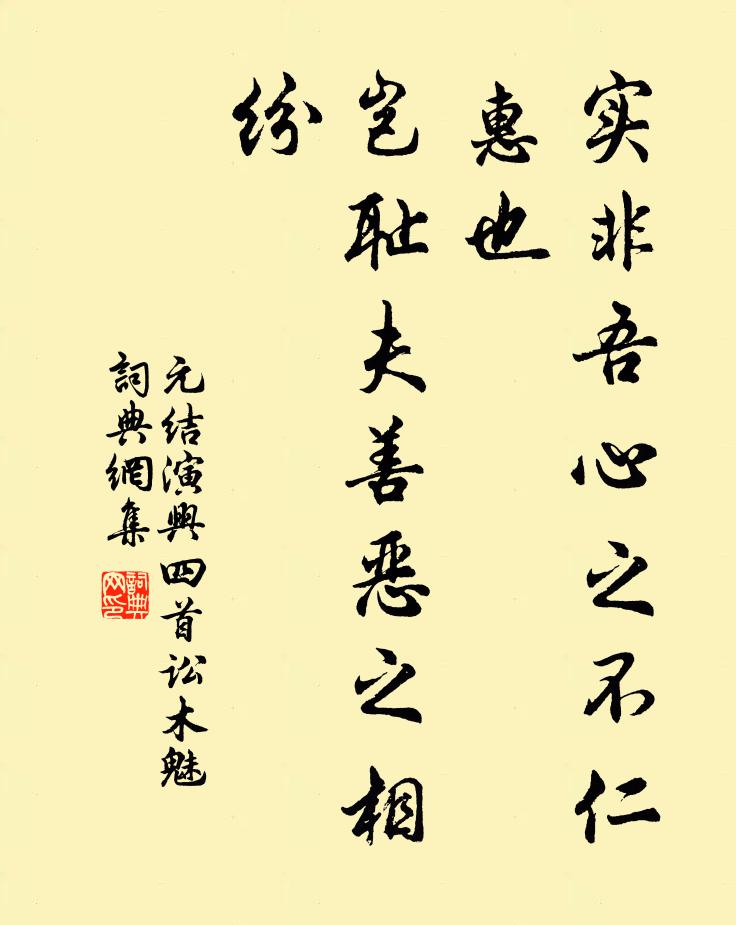 实非吾心之不仁
惠也
岂耻夫善恶之相
纷
元结演兴四首讼木魅
詞典網集
詞典网印